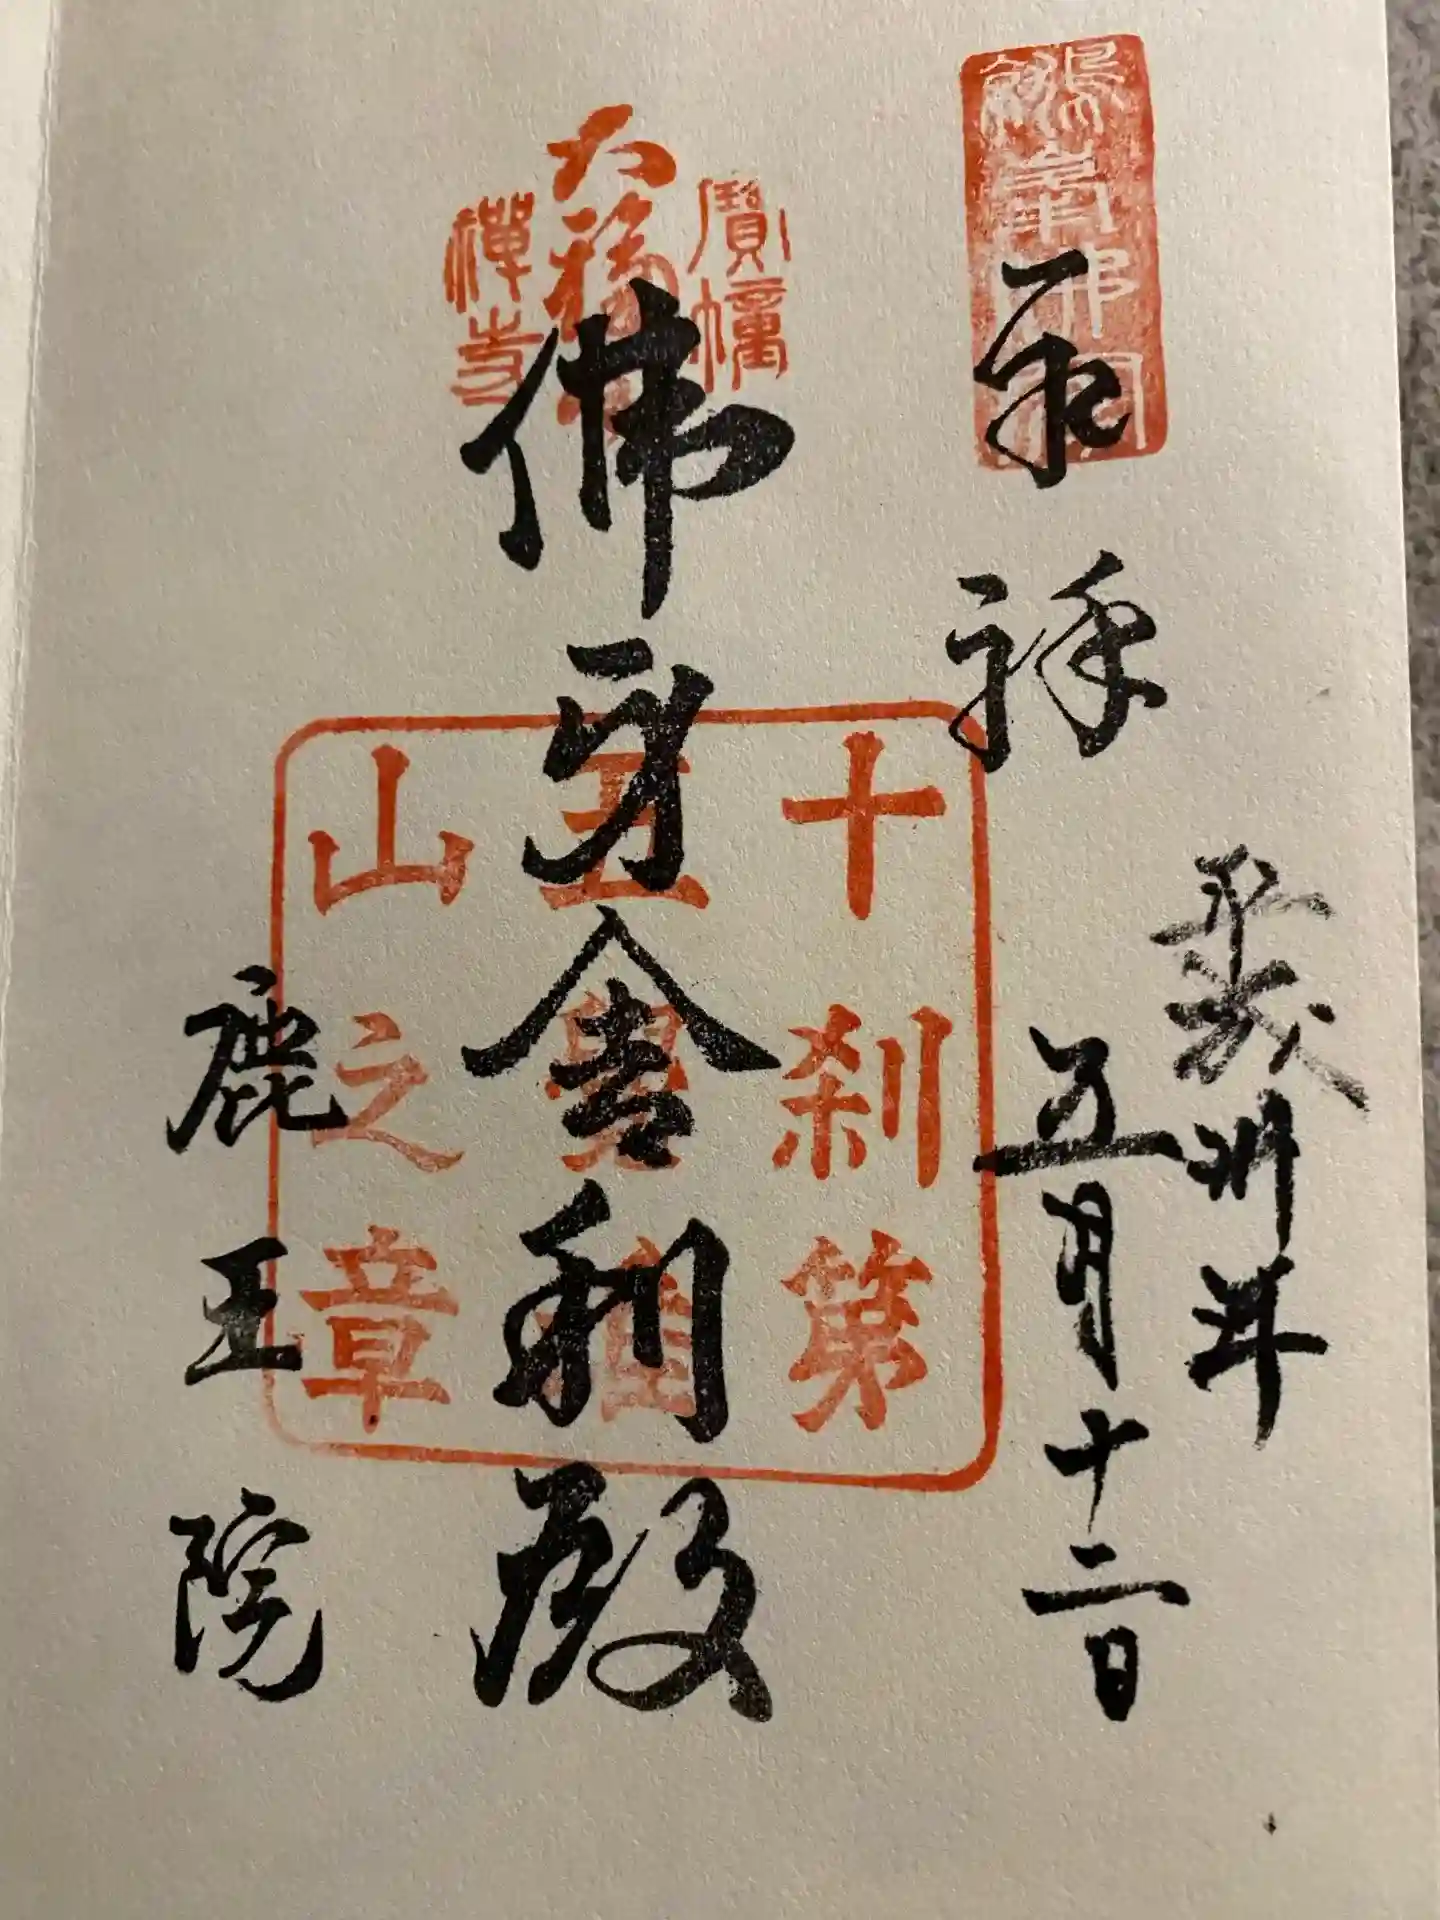 奉拝
平成卅年
五月十二日
佛牙舎利殿
鹿王院
十刹第
五
山之章
寳幢
禅寺